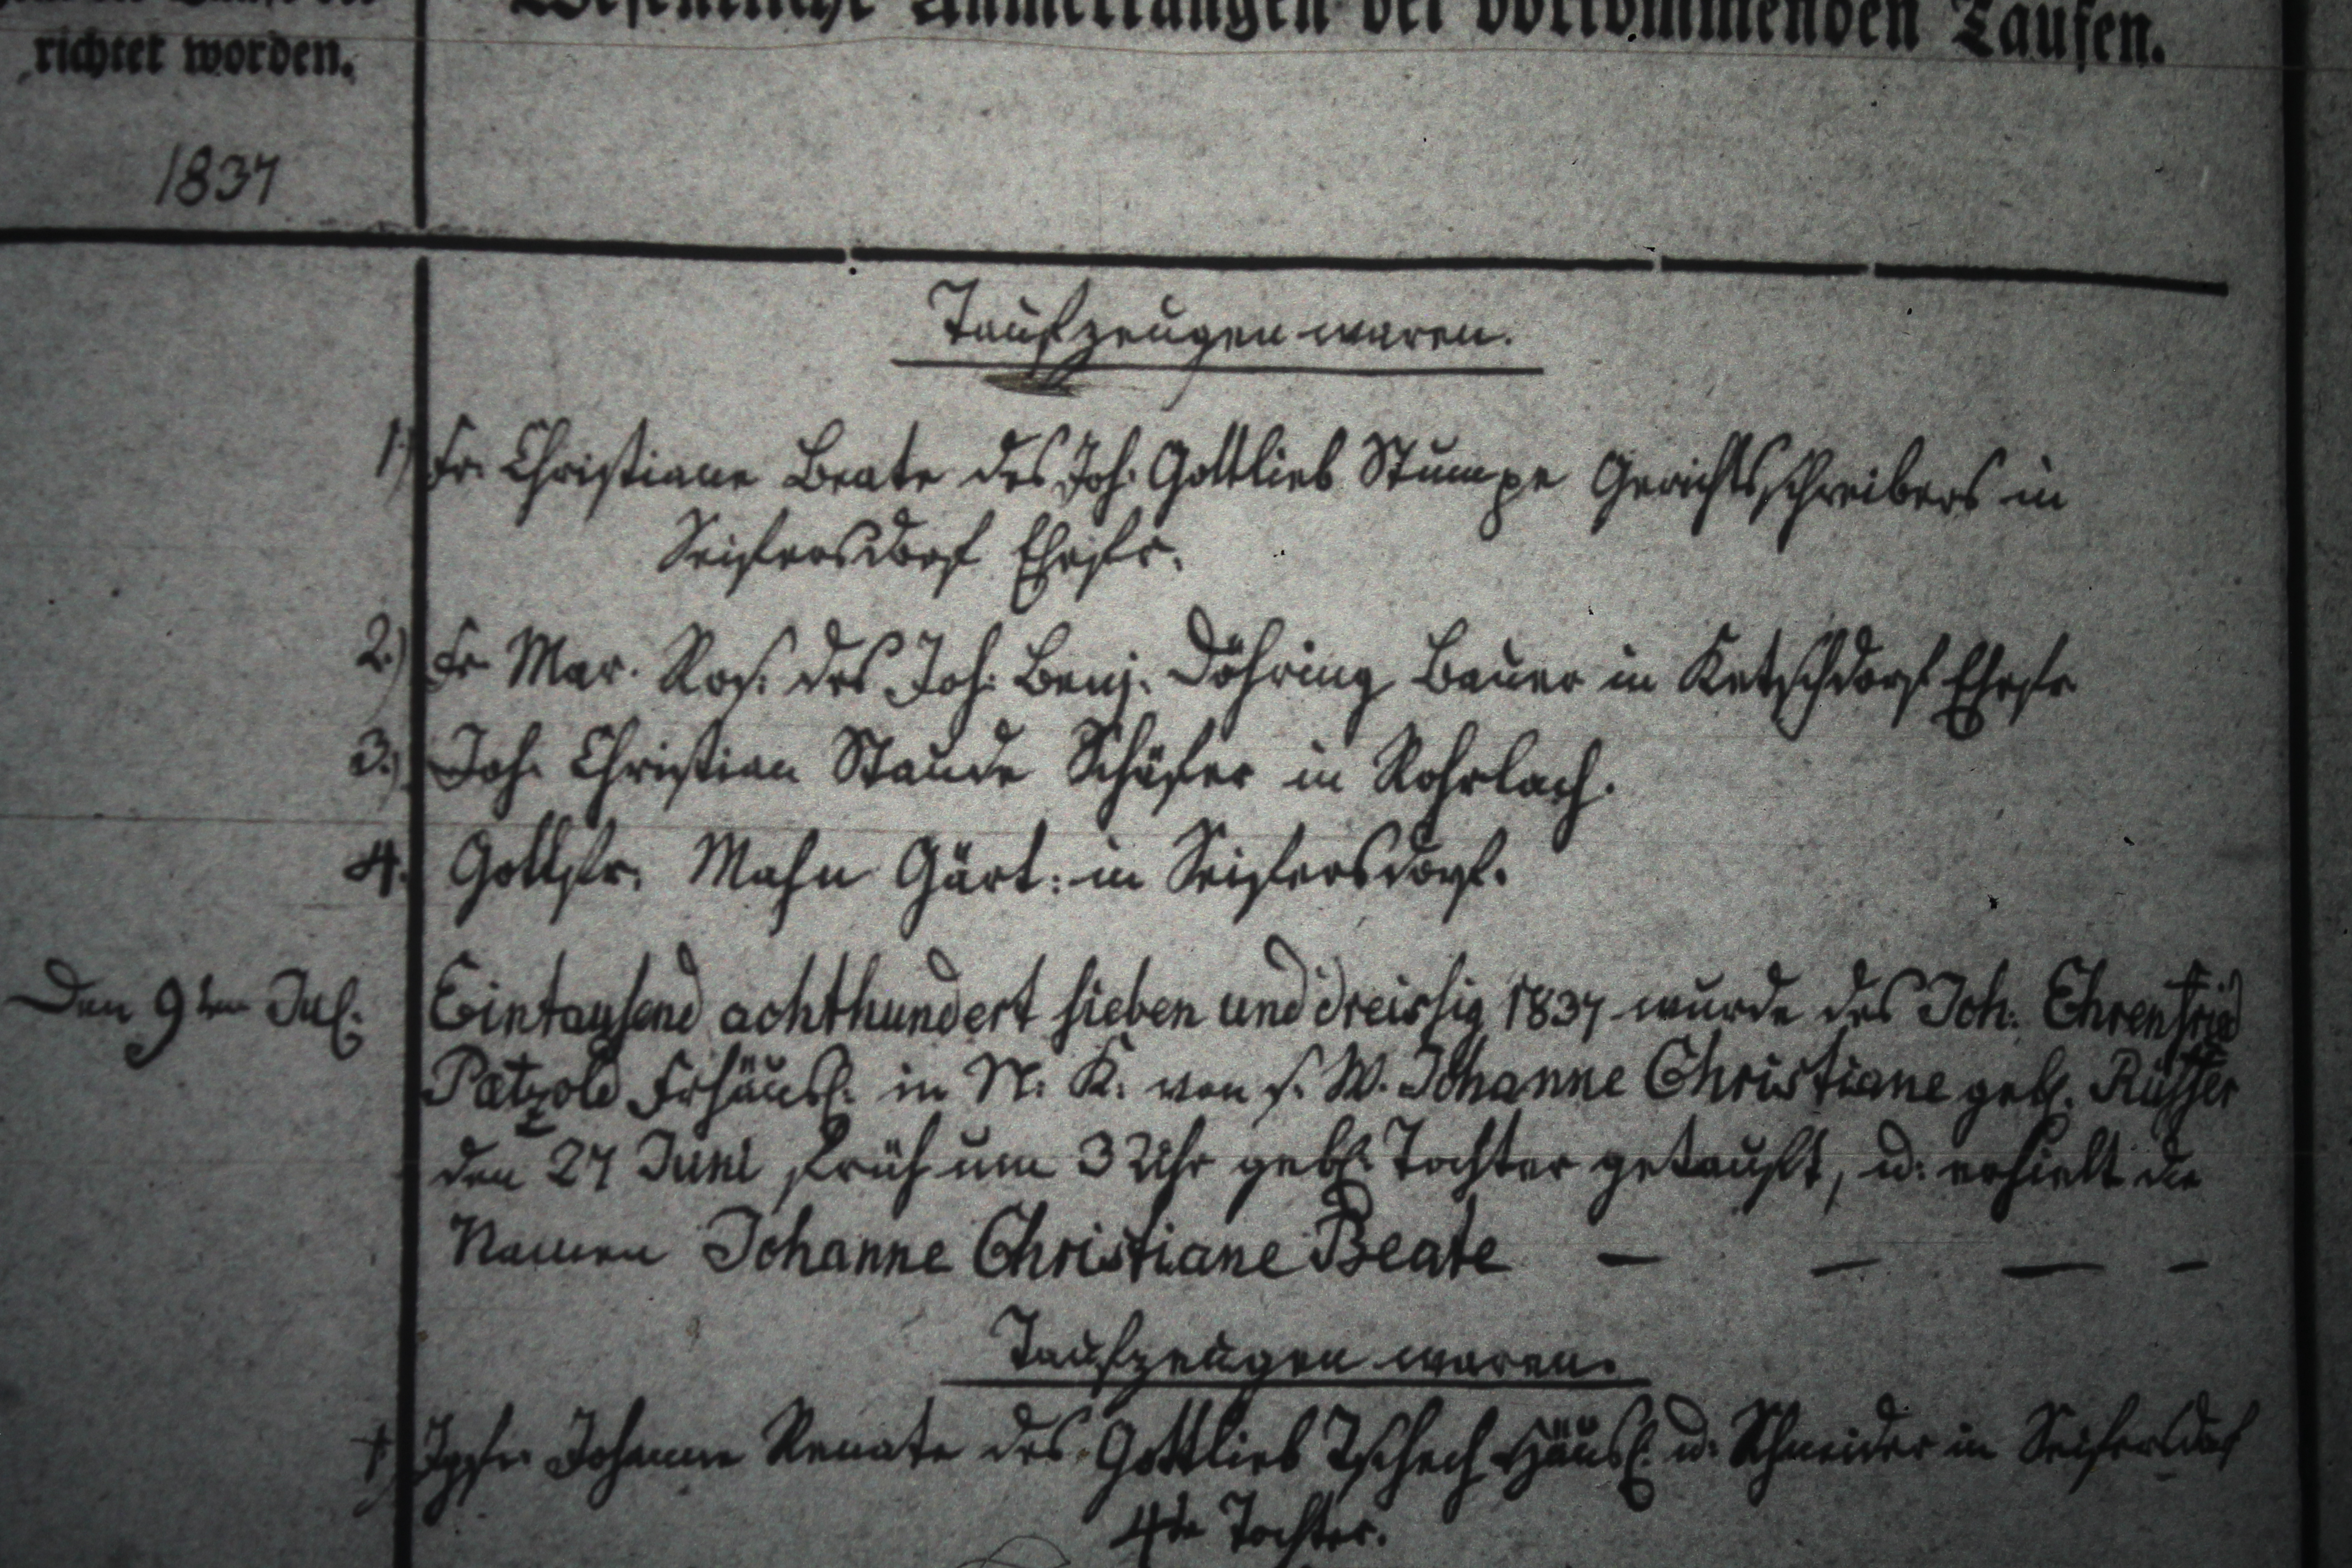 richtet worden.
Wesentliche Anmerkungen bei vorkommenden Taufen.
1837
Taufzeugen waren.
1) Fr. Christiane Beate des Joh. Gottlieb Stumpe Gerichtsschreibers in
Seifersdorf Ehefr.
2.) Fr Mar. Ros. des Joh. Benj. Döhring Bauer in Ketschdorf Ehefr
3.) Joh. Christian Staude Schäfer in Rohrlach.
4. Gottfr. Mahn Gärt: in Seifersdorf.
Den 9ten Jul. Eintausend achthundert sieben und dreissig 1837 wurde des Joh: Ehrenfried
Pätzold Frhäusl. in N. K. von s. W. Johanne Christiane geb.
den 27 Juni früh um 3 Uhr geb. Tochter getauft, u: erhielt die
Namen Johanne Christiane Beate — — — —
Taufzeugen waren.
1) Jgfr. Johanne Renate des Gottlieb Tschech Häusl. u. Schneider in Seifersdorf
4te Tochter.